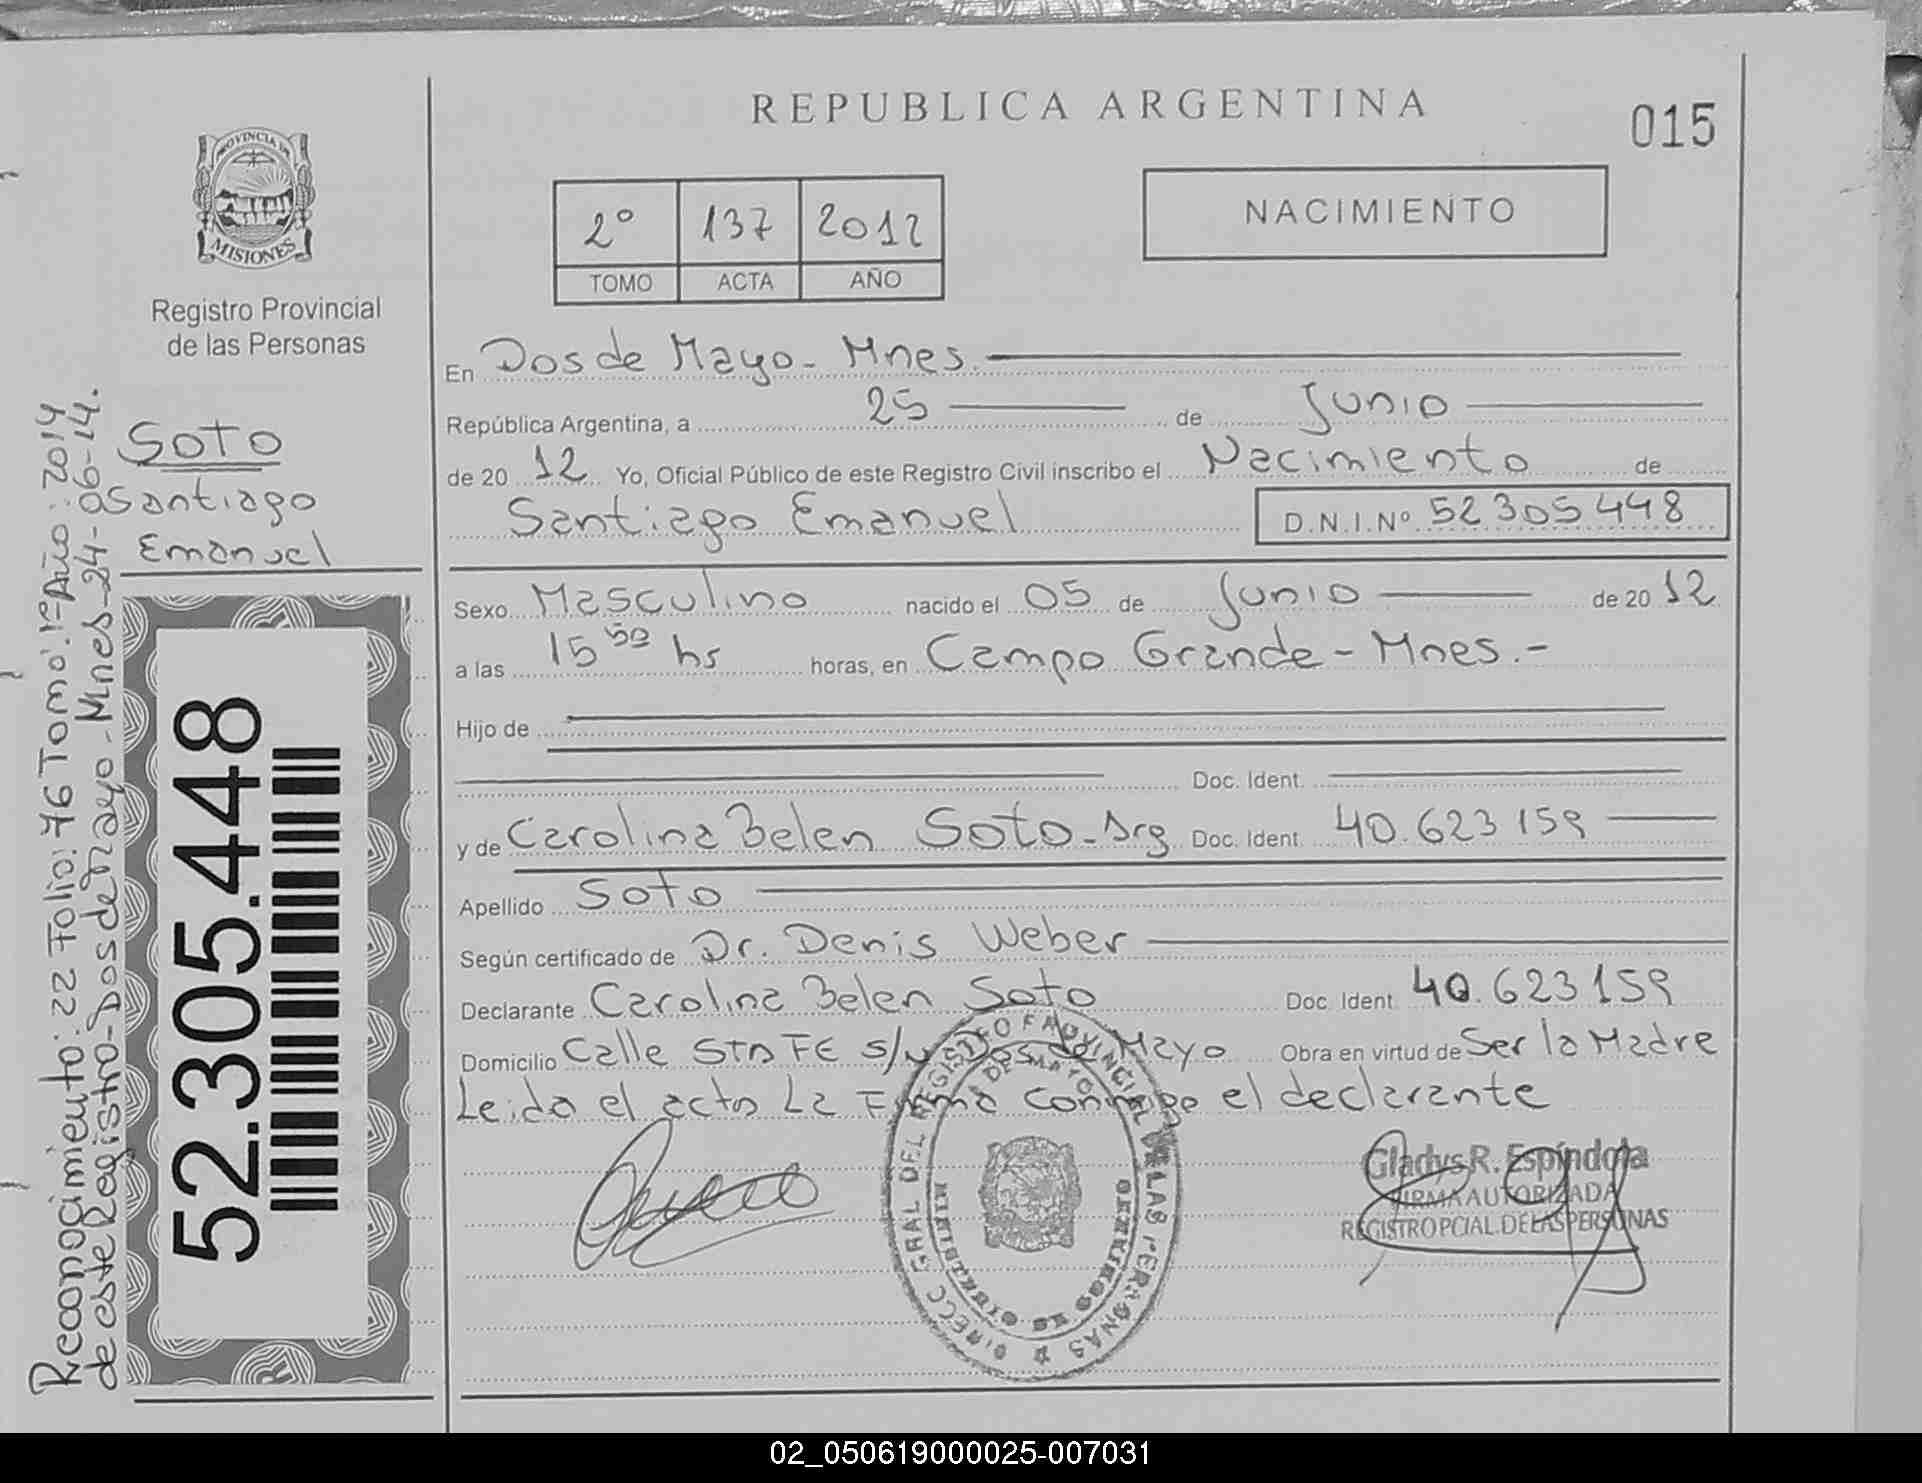 REPUBLICA ARGENTINA
015
PROVINCIA DE
MISIONES
Registro Provincial
de las Personas
2º 137 2012
TOMO ACTA AÑO
NACIMIENTO
En Dos de Mayo - Mnes.
República Argentina, a 25 de Junio
de 20 12 Yo, Oficial Público de este Registro Civil inscribo el Nacimiento de
Santiago Emanuel D.N.I.Nº 52 305 448
Sexo Masculino nacido el 05 de Junio de 20 12
a las 15 50 hs horas, en Campo Grande - Mnes.-
Hijo de
Doc. Ident.
y de Carolina Belen Soto - Arg Doc. Ident. 40.623 159
Apellido Soto
Según certificado de Dr. Denis Weber
Declarante Carolina Belen Soto Doc. Ident. 40.623 159
Domicilio Calle STA FE s/n Dos de Mayo Obra en virtud de Ser la Madre
Leida el acta La Firma Conmigo el declarante
Gladys R. Espíndola
FIRMA AUTORIZADA
REGISTRO PCIAL. DE LAS PERSONAS
SOTO
Santiago
Emanuel
52.305.448
Reconocimiento: 22 Folio: 76 Tomo: 1º Año: 2014
de este Registro - Dos de Mayo - Mnes - 24-06-14.
02_050619000025-007031